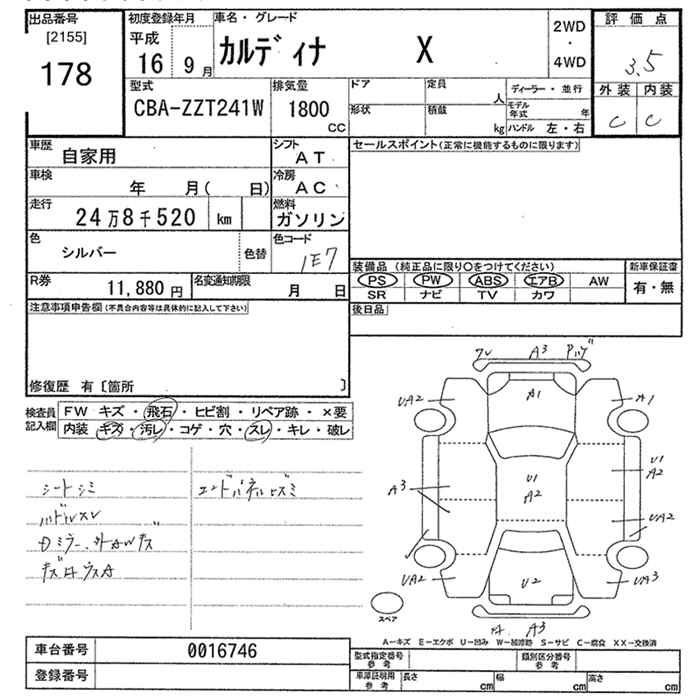 出品番号
[2155]
178
初度登録年月
平成
16 9月
車名・グレード
カルディナ X
2WD
・
4WD
評価点
3.5
外装 内装
C C
型式
CBA-ZZT241W
排気量
1800
CC
ドア
形状
定員
人
積載
kg
ディーラー・並行
モデル
年式
年
ハンドル 左・右
車歴
自家用
シフト
AT
車検
年 月( 日)
冷房
AC
走行
24万8千520 km
燃料
ガソリン
色
シルバー
色替
色コード
1E7
R券
11,880 円
名変通知期限
月 日
セールスポイント(正常に機能するものに限ります)
装備品 (純正品に限り○をつけてください)
新車保証書
PS PW ABS エアB AW
SR ナビ TV カワ
有・無
後日品
注意事項申告欄(不具合内容等は具体的に記入して下さい)
修復歴 有〔箇所 〕
検査員
記入欄
FW キズ・飛石・ヒビ割・リペア跡・×要
内装 キズ・汚レ・コゲ・穴・スレ・キレ・破レ
シートシミ
ハンドルスレ
エンドパネルヒズミ
ワレ A3
A1
UA2
A1
U1
A2
A3
U1
A2
UA2
UA2
UA3
U2
A3
スペア
A-キズ E-エクボ U-凹み W-補修跡 S-サビ C-腐食 XX-交換済
車台番号
0016746
登録番号
型式指定番号
参考
類別区分番号
参考
車庫証明用
参考
長さ
cm
幅
cm
高さ
cm